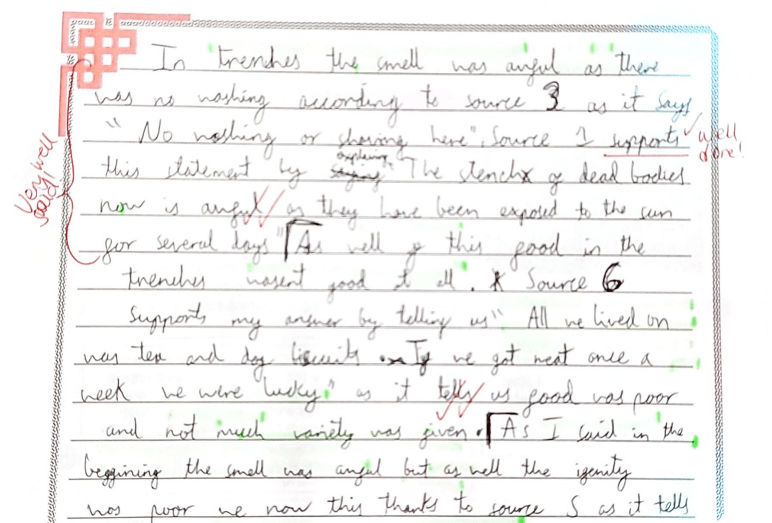 In trenches the smell was awful as there
was no washing according to source 3 as it says
"No washing or shaving here". Source 1 supports well done!
Very well said!
this statement by explaining "The stench of dead bodies
now is awful as they have been exposed to the sun
for several days" As well of this food in the
trenches wasent good at all. Source 6
supports my answer by telling us "All we lived on
was tea and dog biscuits. If we got meat once a
week we were lucky" as it tells us food was poor
and not much variety was given. As I said in the
beggining the smell was awful but as well the
was poor we now this thanks to source 5 as it tells